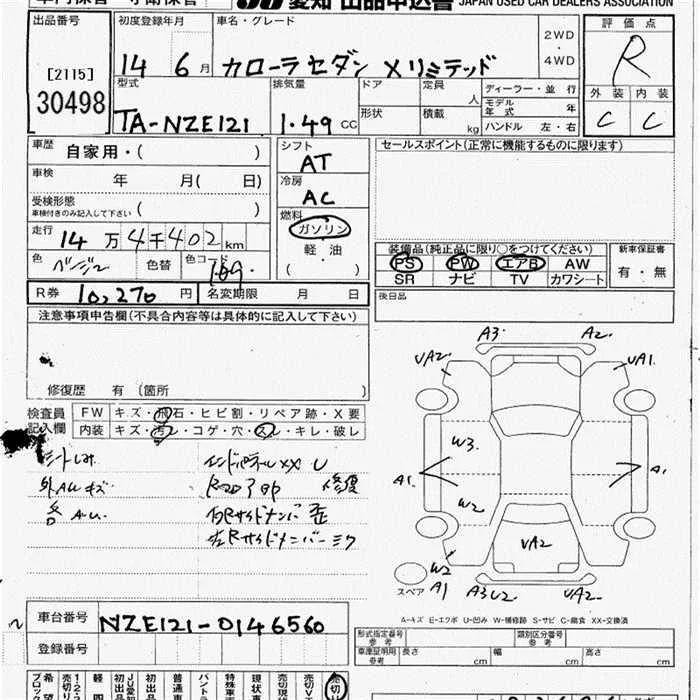 愛知 出品申込書 JAPAN USED CAR DEALERS ASSOCIATION
出品番号
[2115]
30498
初度登録年月
14 6月
車名・グレード
カローラセダン Xリミテッド
2WD
・
4WD
評価点
R
外装 内装
C C
型式
TA-NZE121
排気量
1.49 CC
ドア
形状
定員
人
積載
kg
ディーラー・並行
モデル年式 年
ハンドル 左・右
車歴
自家用・( )
車検
年 月( 日)
受検形態
車検付きのみ記入して下さい ( )
走行
14万4千402km
色 ベージュ 色替 色コード 1G9.
シフト
AT
冷房
AC
燃料
ガソリン
軽油
( )
R券 10,270円 名変期限 月 日
セールスポイント(正常に機能するものに限ります)
装備品(純正品に限り○をつけてください)
PS PW エアB AW
SR ナビ TV カワシート
新車保証書
有・無
後日品
注意事項申告欄(不具合内容等は具体的に記入して下さい)
修復歴 有 (箇所 )
検査員記入欄
FW キズ・飛石・ヒビ割・リペア跡・X要
内装 キズ・汚レ・コゲ・穴・スレ・キレ・破レ
シートしみ
外AUキズ
各AU.
エンドパネルXX U
修復
左Rサイドメンバーミク
A3. A2.
UA2. UA1.
W3.
A1. A1.
W2
UA2
W2
A1 A3U2 UA2.
スペア
A-キズ E-エクボ U-凹み W-補修跡 S-サビ C-腐食 XX-交換済
車台番号 NZE121-0146560
登録番号
形式指定番号 参考
類別区分番号 参考
車庫証明用 参考 長さ cm 幅 cm 高さ cm